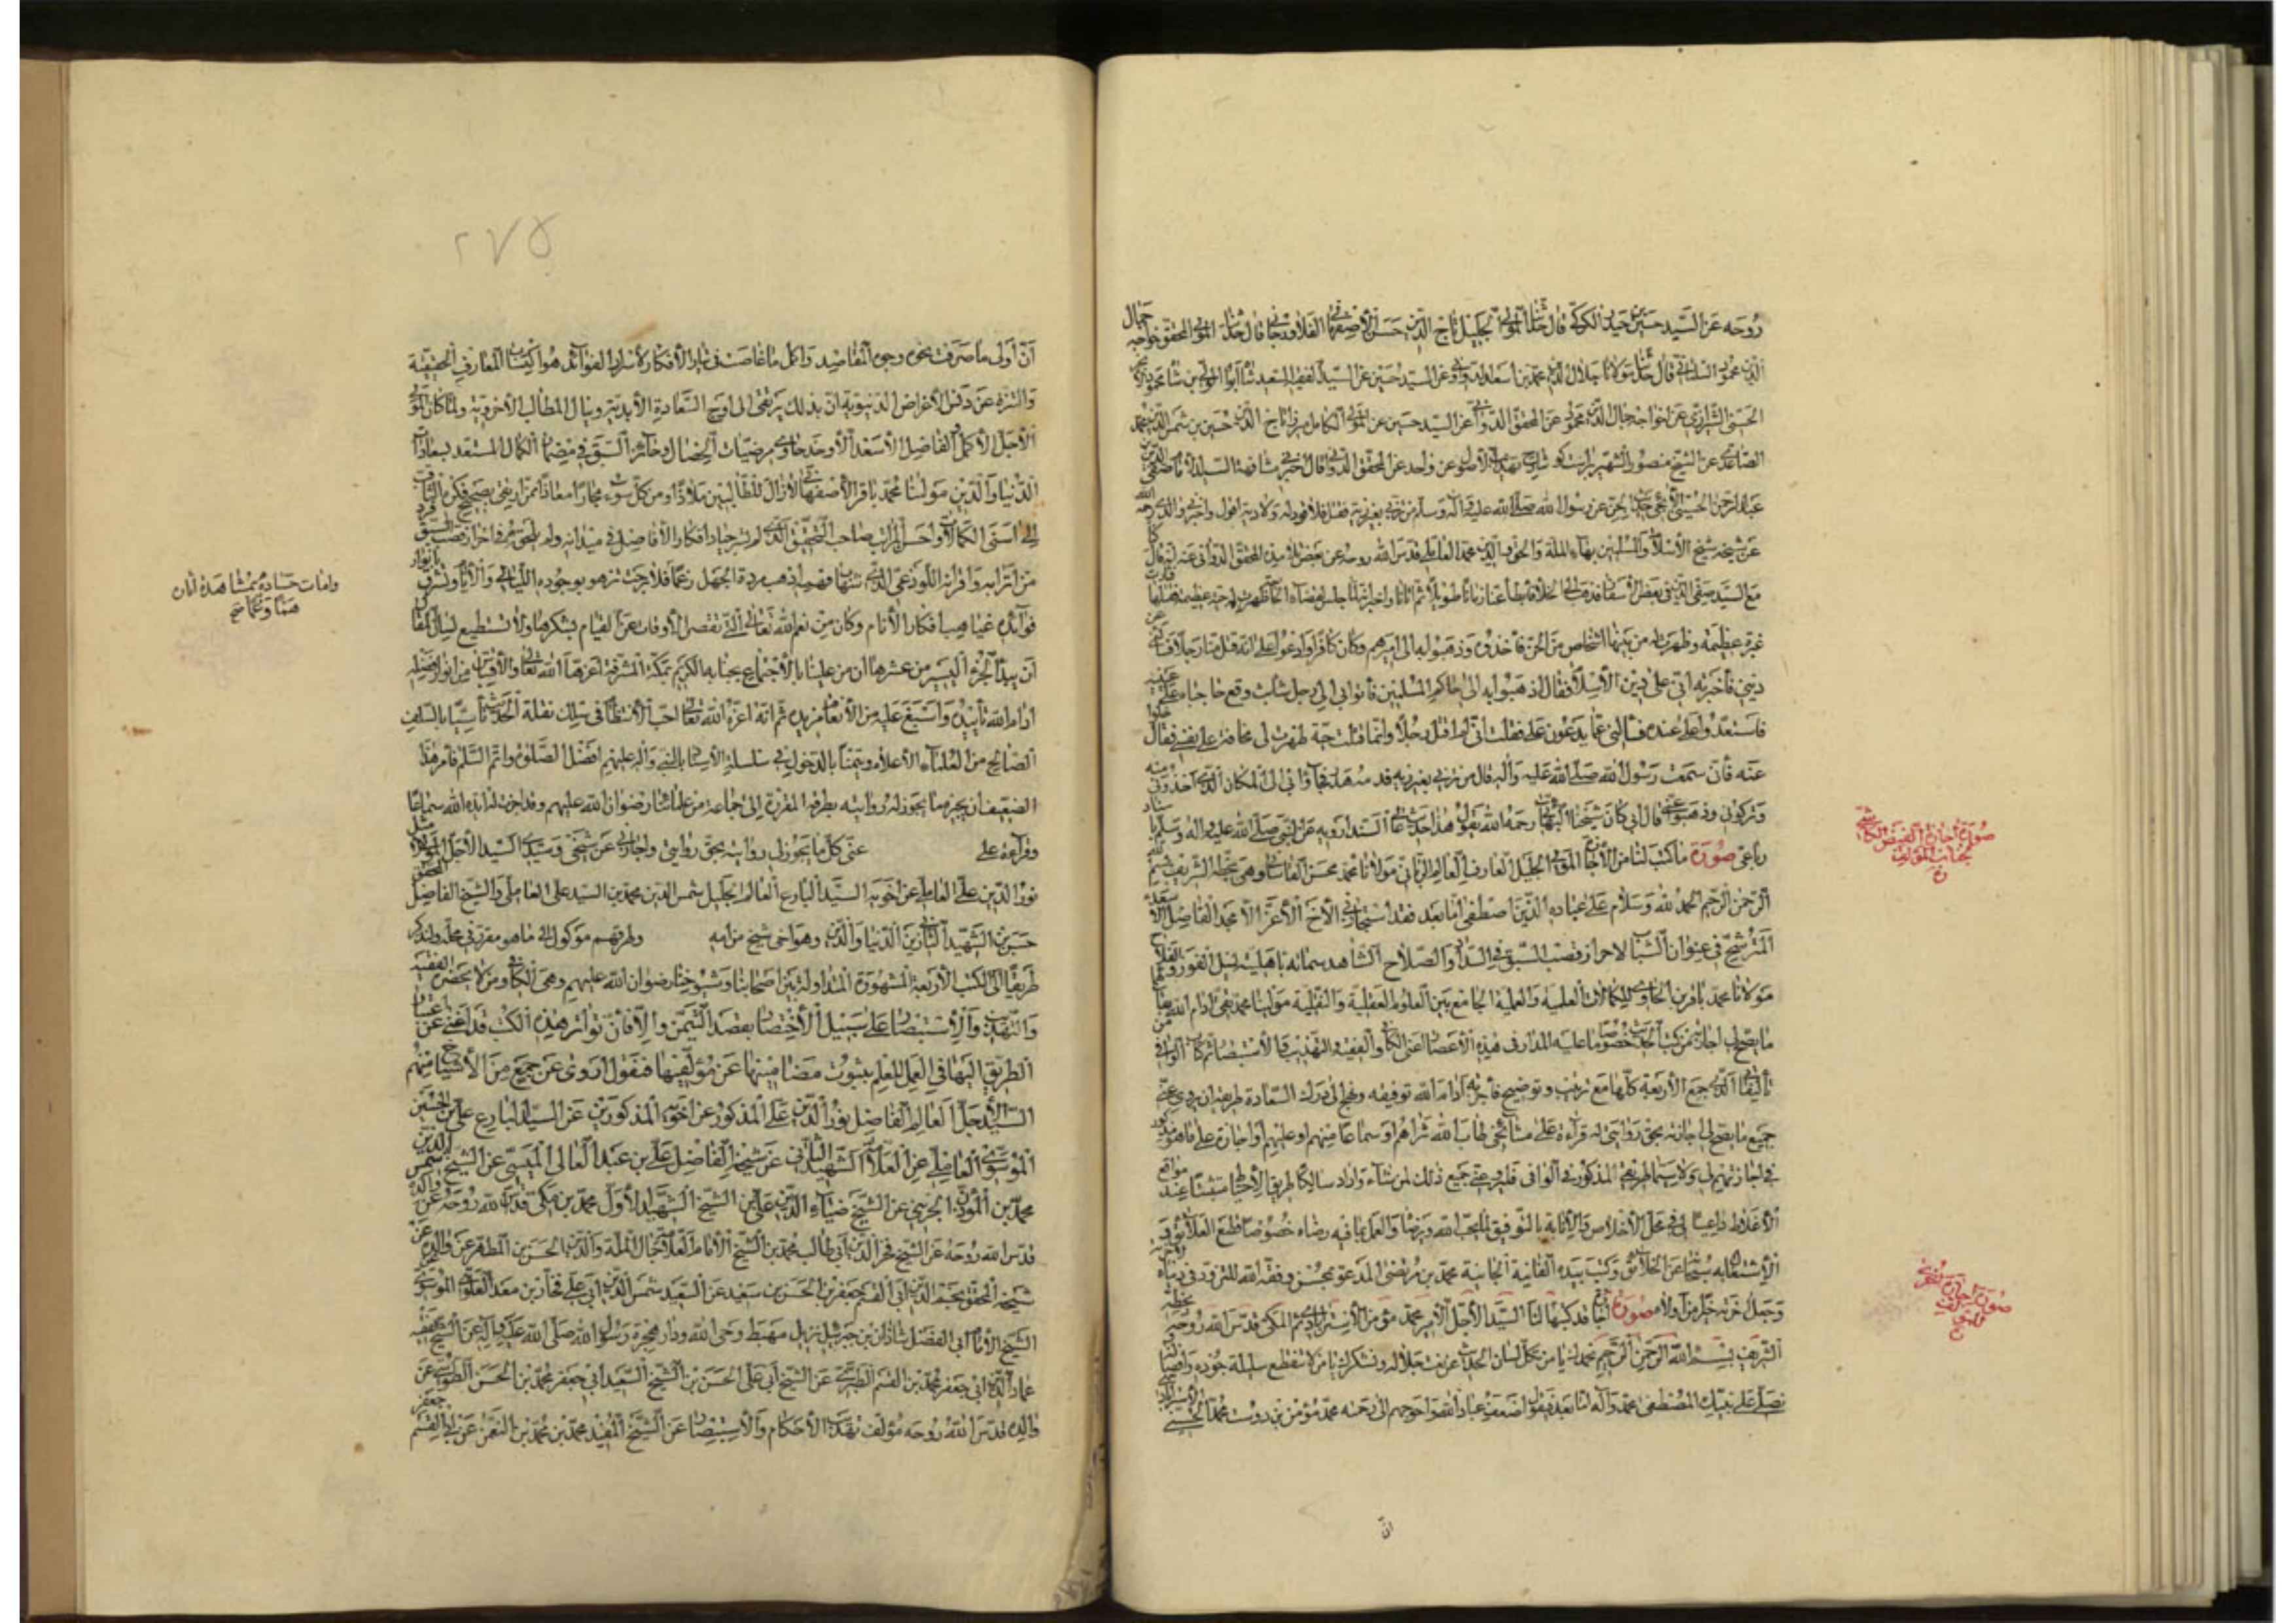 روحه عن السيد حسين بن حيدر الكركي قال حدثنا المولى الجليل تاج الدين حسن الأصفهاني الفلاورجاني قال حدثنا المولى المحقق خواجه جمال
الدين محمود السلماني قال حدثنا مولانا جلال الدين محمد بن أسعد الدواني وعن السيد حسين عن السيد الفقيه السعيد شاه أبو الولي بن شاه محمود
الحسني الشيرازي عن خواجه جمال الدين محمود عن المحقق الدواني وعن السيد حسين عن المولى الكامل ميرزا تاج الدين حسين بن شمس الدين محمد
الصاعدي عن الشيخ منصور الشهير براست كو شارح تهذيب الأصول عن واحد عن المحقق الدواني قال أخبرني مشافهة السيد صفي الدين
عبد الرحمن الحسيني الأيجي حديث الجن عن رسول الله صلى الله عليه وآله وسلم من تزيى بغير زيه فقتل فلا قود له ولا دية أقول وأخبرني والدي رحمه الله
عن شيخه شيخ الإسلام والمسلمين بهاء الملة والحق والدين محمد العاملي قدس الله روحه عن بعض تلامذة المحقق الدواني عنه أنه قال
مع السيد صفي الدين في بعض الأسفار فذهب إلى الخلاء فأبطأ عنا زمانا طويلا ثم أتانا وأخبرنا
غيرة عظيمة وظهر من بينها أشخاص من الجن فأخذوه وذهبوا به إلى أميرهم وكان كافرا وادعوا عليه أنه قتل منا رجلا
ديني فأخبرته أني على دين الإسلام فقال اذهبوا به إلى حاكم المسلمين فأتوا بي إلى رجل شاب وقع حاجباه على عينيه
فاستعدوا علي عنده فسألني عما يدعون علي فقلت إني لم أقتل رجلا وإنما قتلت حية ظهرت لي مخافة على نفسي فقال
عنه فأني سمعت رسول الله صلى الله عليه وآله قال من تزيى بغير زيه فدمه هدر فجاؤا بي إلى المكان الذي أخذوني منه
وتركوني وذهبوا عني قال أبي كان شيخنا البهائي رحمه الله يقول هذا حديث عالي السند أرويه عن النبي صلى الله عليه وآله وسلم
رباعي صورة ما كتب لنا من الإجازة المولى الجليل العارف العالم الرباني مولانا محمد محسن القاساني وهي بخطه الشريف بسم الله
الرحمن الرحيم الحمد لله وسلام على عباده الذين اصطفى أما بعد فقد استجازني الأخ الأعز الأمجد الفاضل الأسعد
المترشح في عنوان الشباب لإحراز قصب السبق في السداد والصلاح الشاهد سماته بأهلية نيل الفوز والفلاح
مولانا محمد باقر بن الحاوي للكمالات العلمية والعملية الجامع بين العلوم العقلية والنقلية مولانا محمد تقي أدام الله
ما يصح لي إجازته من كتب الحديث خصوصا ما عليه المدار في هذه الأعصار أعني الكافي والفقيه والتهذيب والاستبصار ثم كتاب الوافي من
تأليفاتي الذي جمع الأربعة كلها مع ترتيب وتوضيح فأجزته أدام الله توفيقه ونهج إلى درك السعادة طريقه أن يروي عني
جميع ما يصح لي إجازته بحق روايتي له قراءة على مشائخي طاب الله ثراهم أو سماعا منهم أو عليهم أو إجازة على ما هو مذكور
في إجازتهم لي ولا سيما طريقي المذكور في الوافي فليرو عني جميع ذلك لمن شاء وأراد سالكا طريق الاحتياط متثبتا عند مواقع
الأغلاط داعيا لي في محل الإخلاص والإنابة بالتوفيق لما يحب الله ويرضى والعمل بما فيه رضاه خصوصا قطع العلائق
الاشتغال به مستأنسا عن الخلائق وكتب بيده الفانية الجانية محمد بن مرتضى المدعو بمحسن وفقه الله للتزود في دنياه
وجعل آخرته خيرا من أولاه صورة إجازة كتبها لنا السيد الأجل الأمير محمد مؤمن الأسترابادي ثم المكي قدس الله روحه بخطه
الشريف بسم الله الرحمن الرحيم نحمدك يا من كل لسان الحديث عن نعت جلاله ونشكرك يا من لا تنقطع سلسلة جوده
نصلي على نبيك المصطفى محمد وآله أما بعد فيقول أضعف عباد الله وأحوجهم إلى رحمته محمد مؤمن بن دوست محمد الحسيني
ان
صورة إجازة الفيض الكاشي
لجناب المؤلف
٢٧٥
أن أولى ما صرف نحوه وجوه المقاصد وأكمل ما غاصت في تياره الأفكار لأسرار الفوائد هو اكتساب المعارف الحقيقية
والتنزه عن دنس الأغراض الدنيوية إذ بذلك يرتقى إلى أوج السعادة الأبدية وينال المطالب الأخروية ولما كان المولى
الأجل الأكمل الفاضل الأسعد الأوحد حاوي مرضيات الخصال وحائز السبق في مضمار الكمال المستعد لسعادات
الدنيا والدين مولانا محمد باقر الأصفهاني لا زال للطالبين ملاذا ومن كل سوء مجارا معاذا ممن ارتقى بصحيح فكره الثاقب
إلى أسنى الكمالات وأحسن المراتب صاحب التحقيق الذي لم تجر جياد أفكار الأفاضل في ميدانه ولم يلحق في إحراز قصب السبق
من أترابه وأقرانه اللوذعي الذي شهاب فهمه أذهب مردة الجهل رغما فلا برحت تزهو بوجوده الليالي والأيام وتشرق بأنوار
فوائده غياهب أفكار الأنام وكان من نعم الله تعالى التي تقصر الأوقات عن القيام بشكرها ولا تستطيع لسان المقال
أن يبدأ الجزء اليسير من عشرها أن من علينا بالاجتماع بجنابه الكريم بمكة المشرفة أعزها الله تعالى والاقتباس من أنوار فضله
أدام الله تأييده وأسبغ عليه من الإنعام مزيده ثم أنه أعزه الله تعالى أحب الانتظام في سلك نقلة الحديث تأسيا بالسلف
الصالح من العلماء الأعلام وتيمنا بالدخول في سلسلة الانتساب بالنبي وآله عليهم أفضل الصلوة وأتم السلم فأمر هذا
الضعيف أن يجيزه ما يجوز له روايته بطرقه المقررة إلى جماعة من علمائنا رضوان الله عليهم وقد أجزت له أيده الله سماعا
وقراءة على عني كل ما يجوز لي روايته بحق روايتي وإجازتي عن شيخي وسيدي السيد الأجل المولى
نور الدين علي العاملي عن أخويه السيد البارع العالم الجليل شمس الدين محمد بن السيد علي العاملي والشيخ الفاضل المحقق
حسن بن الشهيد الثاني زين الدنيا والدين وهو أخي شيخ من أمه وطرقهم موكول إلى ما هو مقرر في محله ولنذكر
طريقا إلى الكتب الأربعة المشهورة المتداولة بين أصحابنا وشيوخنا رضوان الله عليهم وهي الكافي ومن لا يحضره الفقيه
والتهذيب والاستبصار على سبيل الاختصار بقصد التيمن وإلا فإن تواتر هذه الكتب قد أغنى عن اعتبار
الطريق إليها في العمل للعلم بثبوت مضامينها عن مؤلفيها فنقول أروي عن جميع من الأشياخ منهم
السيد الأجل العالم الفاضل نور الدين علي المذكور عن أخويه المذكورين عن السيد البارع علي بن الحسين
الموسوي العاملي عن العلامة الشهيد الثاني عن شيخه الفاضل علي بن عبد العالي الميسي عن الشيخ شمس الدين
محمد بن المؤذن الجزيني عن الشيخ ضياء الدين علي بن الشيخ الشهيد الأول محمد بن مكي قدس الله روحه عن والده
قدس الله روحه عن الشيخ فخر الدين أبي طالب محمد بن الشيخ الإمام العلامة جمال الملة والدين الحسن بن المطهر عن والده عن
شيخه المحقق نجم الدين أبي القسم جعفر بن الحسن بن سعيد عن السعيد شمس الدين أبي علي فخار بن معد العلوي الموسوي
الشيخ الإمام أبي الفضل شاذان بن جبرئيل نزيل مهبط وحي الله ودار هجرة رسول الله صلى الله عليه وآله عن الشيخ الفقيه
عماد الدين أبي جعفر محمد بن القسم الطبري عن الشيخ أبي علي الحسن بن الشيخ السعيد أبي جعفر محمد بن الحسن الطوسي عن
والده قدس الله روحه مؤلف تهذيب الأحكام والاستبصار عن الشيخ المفيد محمد بن محمد بن النعمن عن أبي القسم جعفر